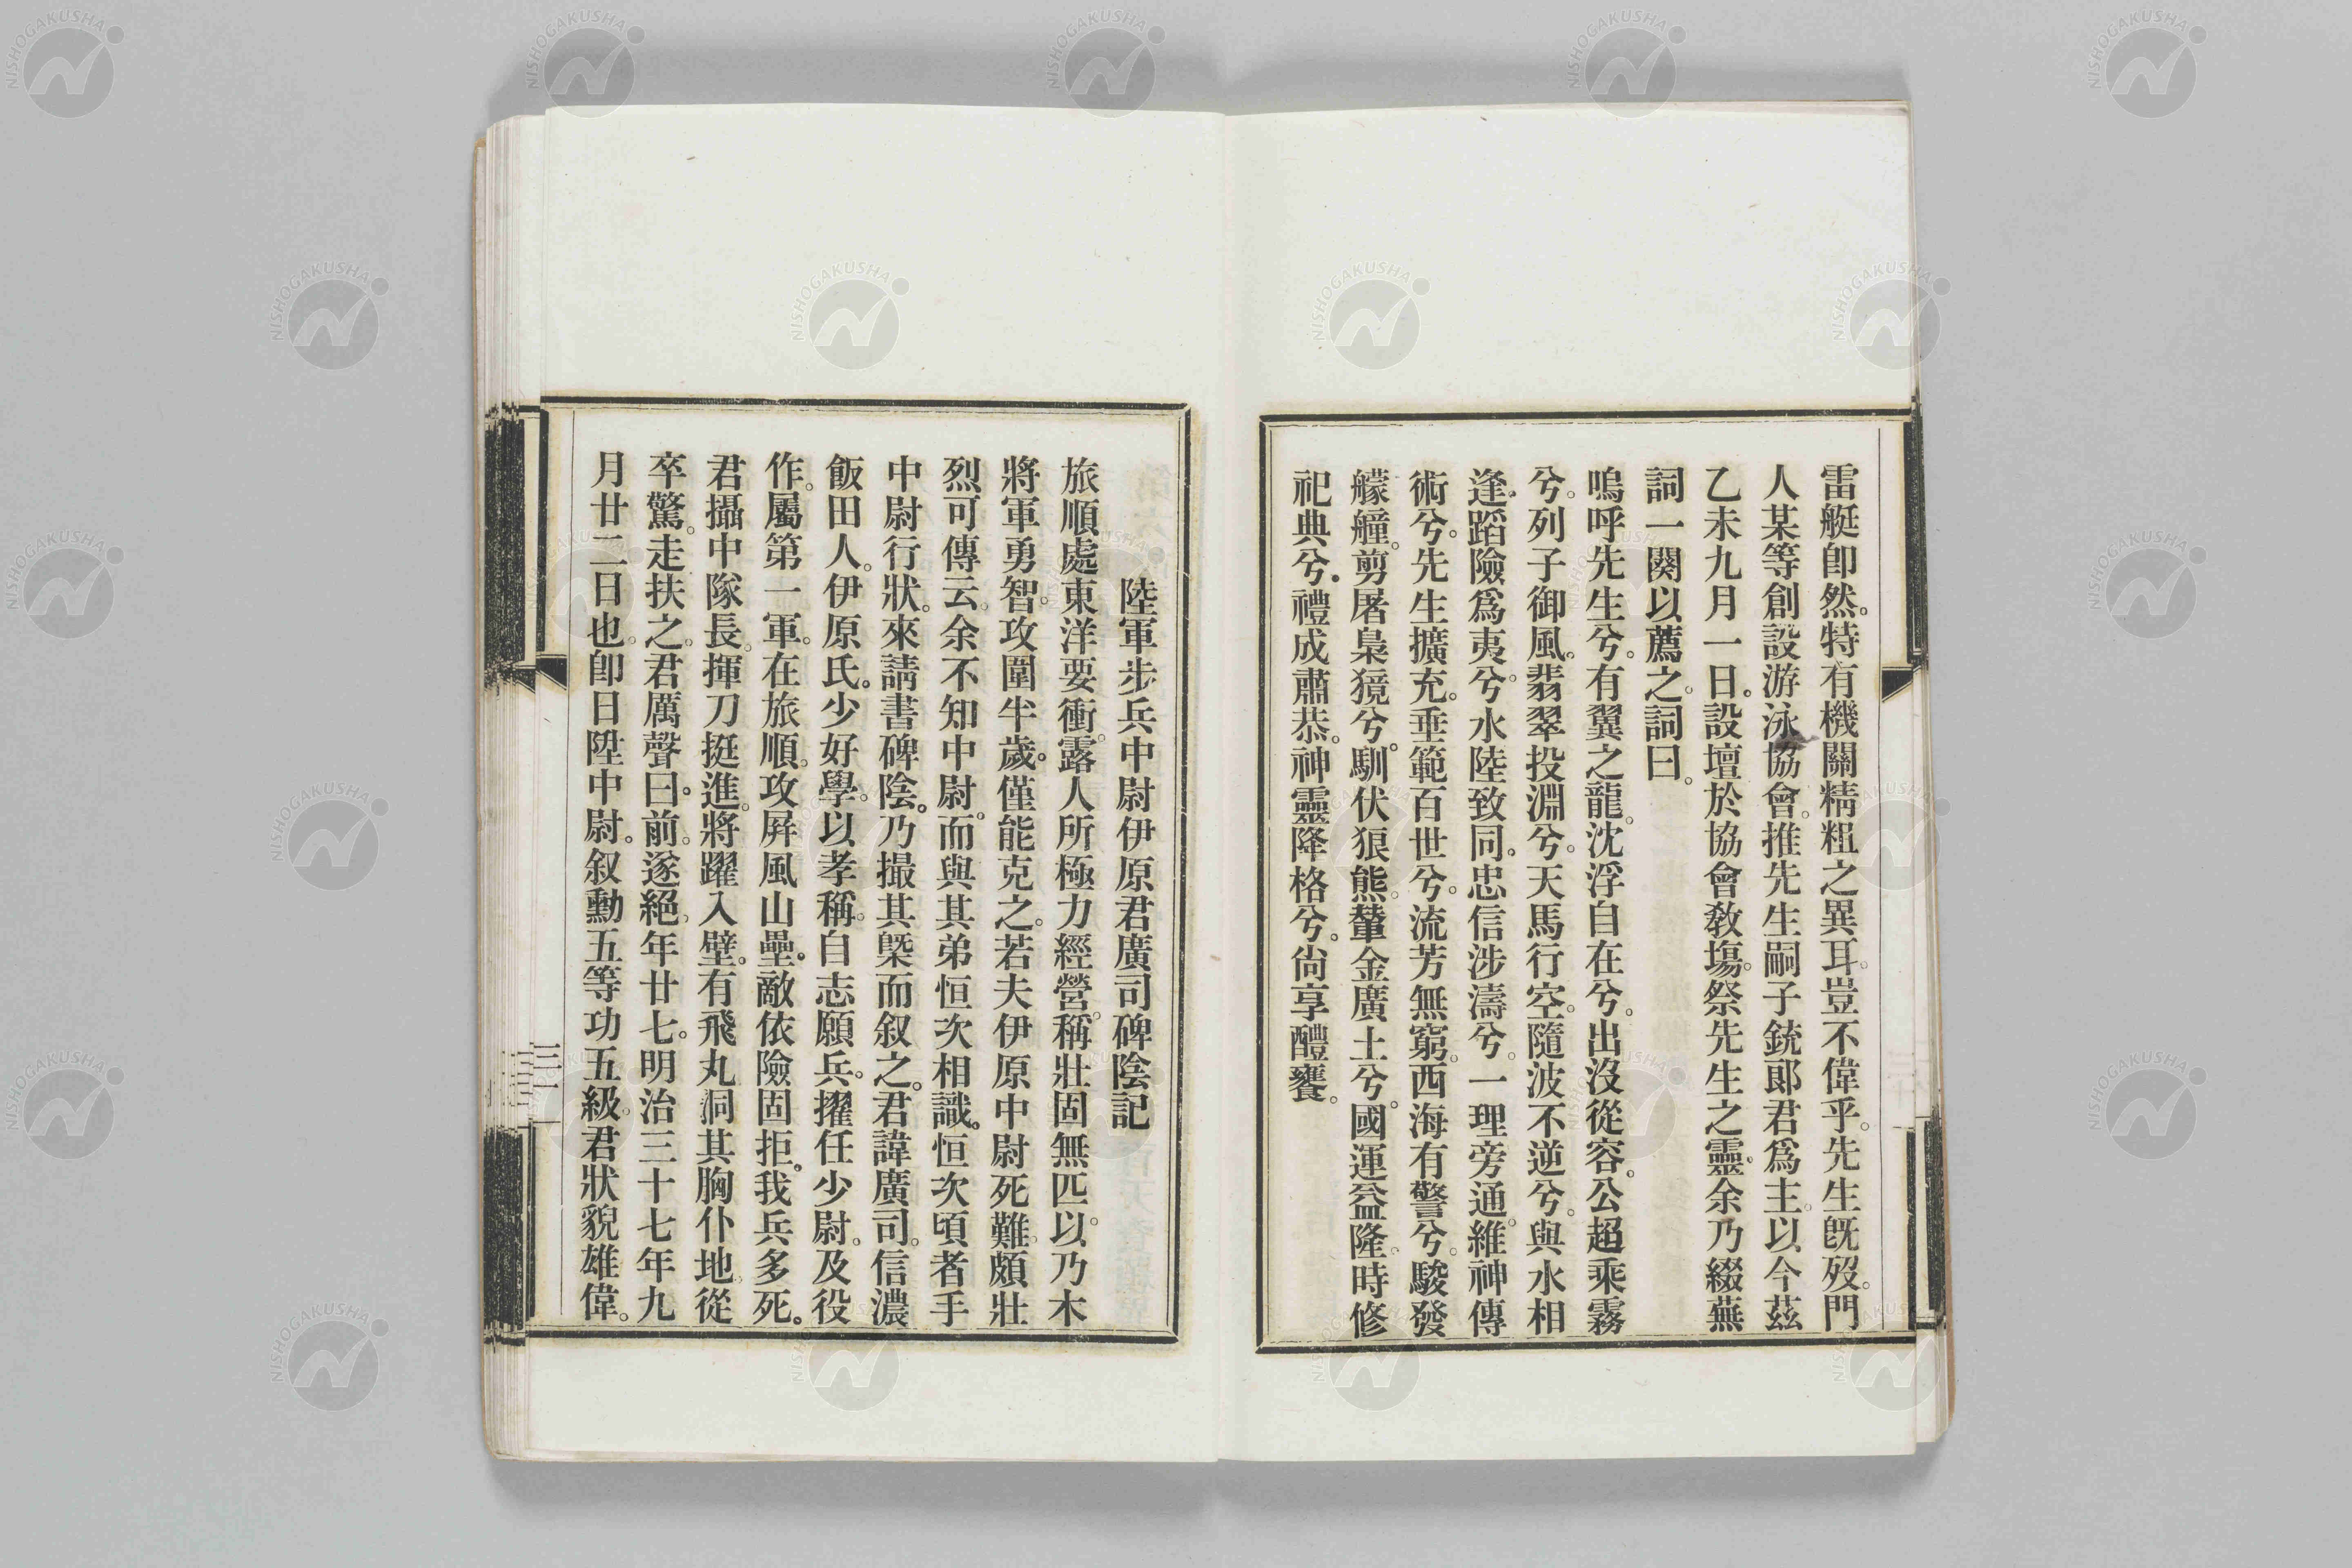 雷艇卽然。特有機關精粗之異耳。豈不偉乎。先生旣歿。門
人某等創設游泳協會。推先生嗣子銃郎君爲主。以今茲
乙未九月一日。設壇於協會教場。祭先生之靈。余乃綴蕪
詞一闋以薦之。詞曰。
嗚呼先生兮。有翼之龍。沈浮自在兮。出沒從容。公超乘霧
兮。列子御風。翡翠投淵兮。天馬行空。隨波不逆兮。與水相
逢。蹈險爲夷兮。水陸致同。忠信涉濤兮。一理旁通。維神傳
術兮。先生擴充。垂範百世兮。流芳無窮。西海有警兮。駿發
艨艟。剪屠梟獍兮。馴伏狼熊。輦金廣土兮。國運益隆。時修
祀典兮。禮成肅恭。神靈降格兮。尙享醴饔。
陸軍步兵中尉伊原君廣司碑陰記
旅順處東洋要衝。露人所極力經營。稱壯固無匹。以乃木
將軍勇智。攻圍半歲。僅能克之。若夫伊原中尉死難。頗壯
烈可傳云。余不知中尉。而與其弟恒次相識。恒次頃者手
中尉行狀。來請書碑陰。乃撮其槩而叙之。君諱廣司。信濃
飯田人。伊原氏。少好學。以孝稱。自志願兵。擢任少尉。及役
作。屬第一軍。在旅順。攻屛風山壘。敵依險固拒。我兵多死。
君攝中隊長。揮刀挺進。將躍入壁。有飛丸洞其胸仆地。從
卒驚。走扶之。君厲聲曰。前。遂絕。年廿七。明治三十七年九
月廿二日也。卽日陞中尉。叙勳五等功五級。君狀貌雄偉。
三一
NISHOGAKUSHA